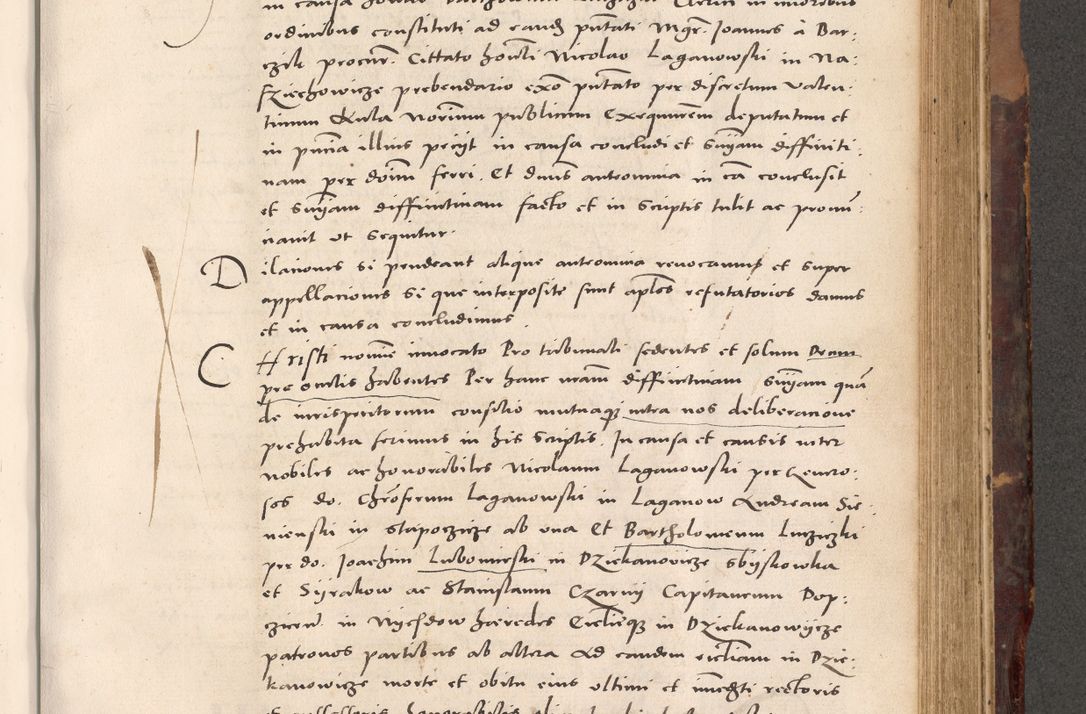 in causa honor. Bartholomei Luzyczki Clerici in minoribus
ordinibus constituti ad eand putati Mgr. Joannes à Bar:
czik procur. Cittato honli Nicolao Laganowski in Na:
sziechowicze prebendario exo putato per discretum valen:
tinum Akula Norium publicum Exequutem deputatum et
in pntia illius petijt in causa concludi et Snijam diffiniti:
uam per doim ferri. Et dnus anteomnia in ca conclusit
et Snijam diffinitiuam facto et in Scriptis tulit ac pronū:
ciauit ut Sequitur.
Dilaciones si pendeant alique anteomnia reuocamus et Super
appellacionis Si que interposite sunt aplos refutatorios damus
et in causa concludimus
CHristi nomine inuocato Pro tribunali sedentes et solum Deum
pre oculis habentes Per hanc nram diffinitiuam Snijam quā
de iurisperitorum consilio mutuaqz intra nos deliberacione
prehabita ferimus in his Scriptis. In causa et causis inter
nobiles ac honorabiles Nicolaum Laganowski per Genero:
ses do. Chroferum Laganowski in Laganow Andream Sie:
nienski in Stapoczicze ab una Et Bartholomeum Luziczki
per do. Joachim Lubomirski in Dziekanowicze Sbijkowka
et Sijrakow ac Stanislaum Czarny Capitaneum Dop:
czicen. in Wijesdow haeredes Ecclieqz in Dziekanowijcze
patronos partibus ab altera Ad eandem eccliam in Dzie:
kanowicze morte et obitu eius ultimi et immedti rectoris